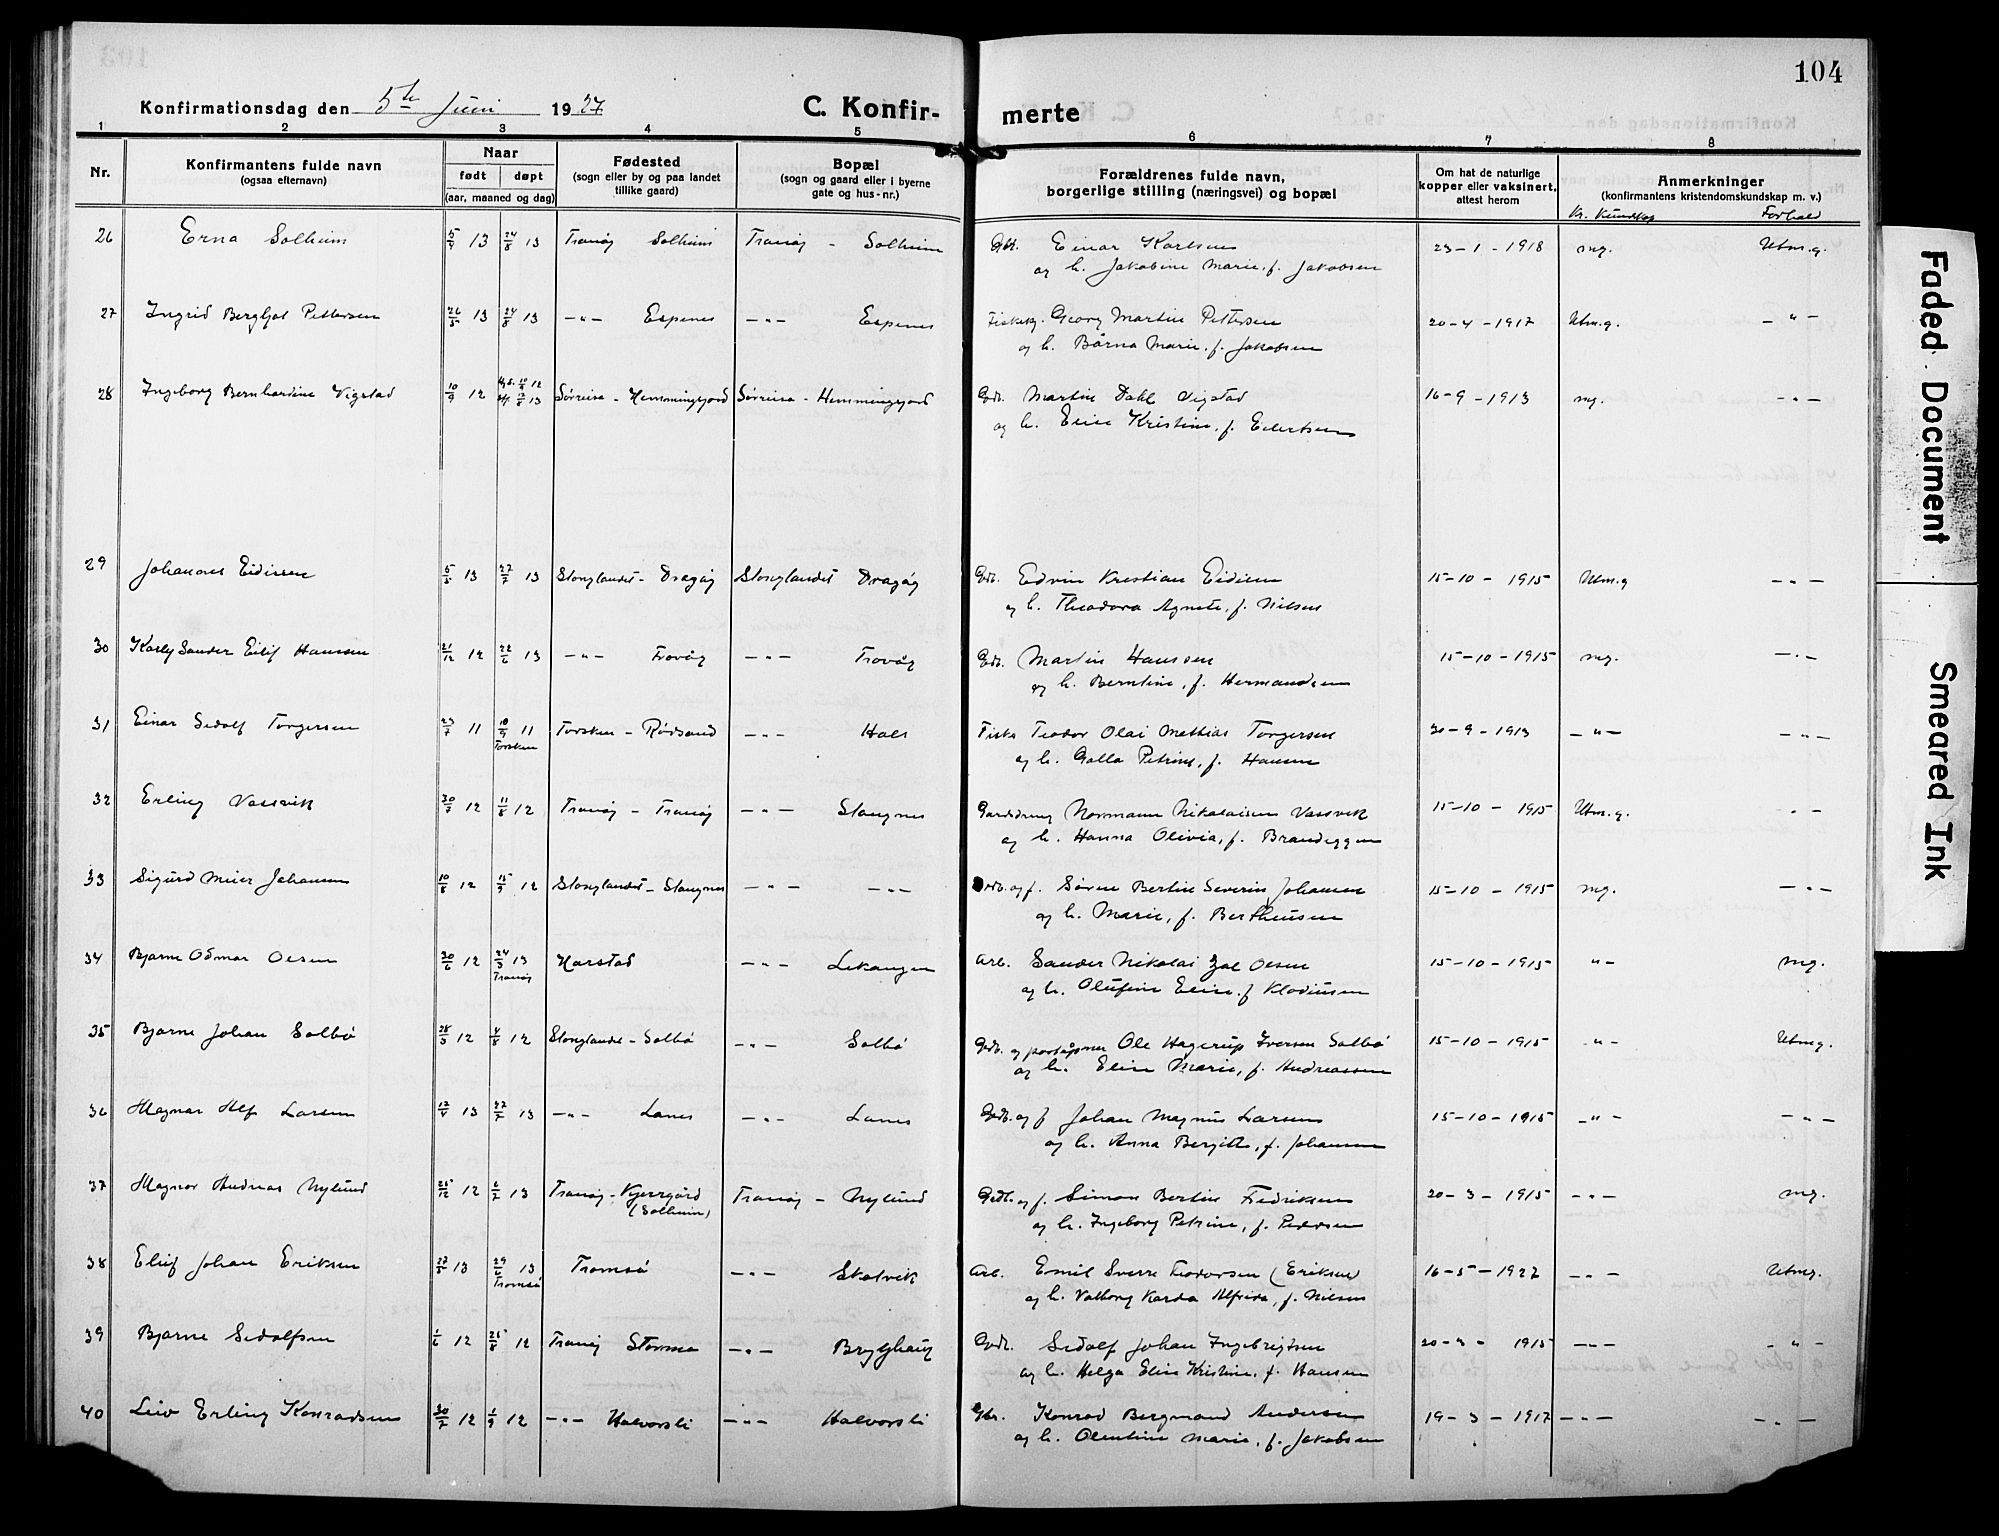 104
Konfirmationsdag den 5te Juni 1927
C. Konfirmerte
1 2 3 4 5 6 7 8
Nr.
Konfirmantens fulde navn
(ogsaa efternavn)
Naar
født døpt
(aar, maaned og dag)
Fødested
(sogn eller by og paa landet
tillike gaard)
Bopæl
(sogn og gaard eller i byerne
gate og hus-nr.)
Forældrenes fulde navn,
borgerlige stilling (næringsvei) og bopæl
Om hat de naturlige
kopper eller vaksinert,
attest herom
Anmerkninger
(konfirmantens kristendomskundskap m. v.)
Kr. Kundskap Forhold
26 Erna Solheim 5/9 13 24/8 13 Tranøy Solheim Tranøy - Solheim Gbr. Einar Karlsen 23-1-1918 mg. Utm.g.
og h. Jakobine Marie, f. Jakobsen
27 Ingrid Bergljot Pettersen 26/5 13 24/8 13 -"- Espenes -"- Espenes Fiskekj. Georg Martin Pettersen 20-4-1917 Utm.g. -"-
og h. Bårna Marie, f. Jakobsen
28 Ingeborg Bernhardine Vigstad 10/9 12 Sørreisa - Hemmingfjord Sørreisa - Hemmingfjord Gdb. Martin Dahl Vigstad 16-9-1913 mg. -"-
og h. Elise Kristine, f. Edertsen
29 Johannes Eidissen 5/5 13 27/7 13 Stonglandet - Dragøy Stonglandet Dragøy Gdb. Edvin Kristian Eidissen 15-10-1915 Utm.g -"-
og h. Theodora Agnete, f. Nilsen
30 Karly Sander Eilif Hansen 21/12 12 22/6 13 -"- Trovåg -"- Trovåg Gdb. Martin Hanssen 15-10-1915 mg. -"-
og h. Berntine, f. Hermandsen
31 Einar Sedolf Torgersen 23/7 11 10/9 11 Torsken - Rødsand -"- Hals Fisker Teodor Olai Mathias Torgersen 30-9-1913 -"- -"-
Torsken
og h. Galla Petrine, f. Hansen
32 Erling Vassvik 30/7 12 11/8 12 Tranøy - Tranøy -"- Stangnes Normann Nikolaisen Vassvik 15-10-1915 Utm.g. -"-
og h. Hanna Olivia, f. Brandeggen
33 Sigurd Meier Johansen 10/8 12 15/9 12 Stonglandet - Stangnes -"- -"- Gdb. og f. Søren Bertin Severin Johansen 15-10-1915 mg. -"-
og h. Marie, f. Bertheusen
34 Bjarne Odmar Olsen 30/6 12 24/3 13 Harstad -"- Lekangen Arb. Sander Nikolai Zal Olsen 15-10-1915 -"- mg.
Tranøy
og h. Olufine Elise, f. Klodiusen
35 Bjarne Johan Solbø 28/3 12 4/8 12 Stonglandet - Solbø -"- Solbø Gdb. og poståpner Ole Hagerup Iversen Solbø 15-10-1915 -"- Utmg.
og h. Elise Marie, f. Andreassen
36 Magnar Alf Larsen 17/4 13 27/7 13 -"- Lanes -"- Lanes Gdb. og f Johan Magnus Larsen 15-10-1915 -"- -"-
og h. Anna Bergitte, f. Johansen
37 Magnor Andreas Nylund 25/12 12 6/7 13 Tranøy - Kjerrgård Tranøy - Nylund Gdb. og f. Simon Bertin Fredriksen 20-3-1915 -"- mg.
(Solheim)
og h. Ingeborg Petrine, f. Pedersen
38 Eliif Johan Eriksen 27/5 13 29/6 13 Tromsø -"- Skatvik Arb. Emil Sverre Teodorsen (Eriksen) 16-5-1927 -"- Utmg.
Tromsø
og h. Valborg Karda Alfrida, f. Nilsen
39 Bjarne Sedolfsen 1/6 12 25/8 12 Tranøy Stormo -"- Brygghaug Gdb. Sedolf Johan Ingebrigtsen 20-3-1915 -"- -"-
og h. Helga Elise Kristine, f. Hansen
40 Leiv Erling Konradsen 30/7 12 1/9 12 -"- Halvorsli -"- Halvorsli Gbr. Konrad Bergmand Andersen 19-3-1917 -"- -"-
og h. Olentine Marie, f. Jakobsen
Faded Document
Smeared Ink